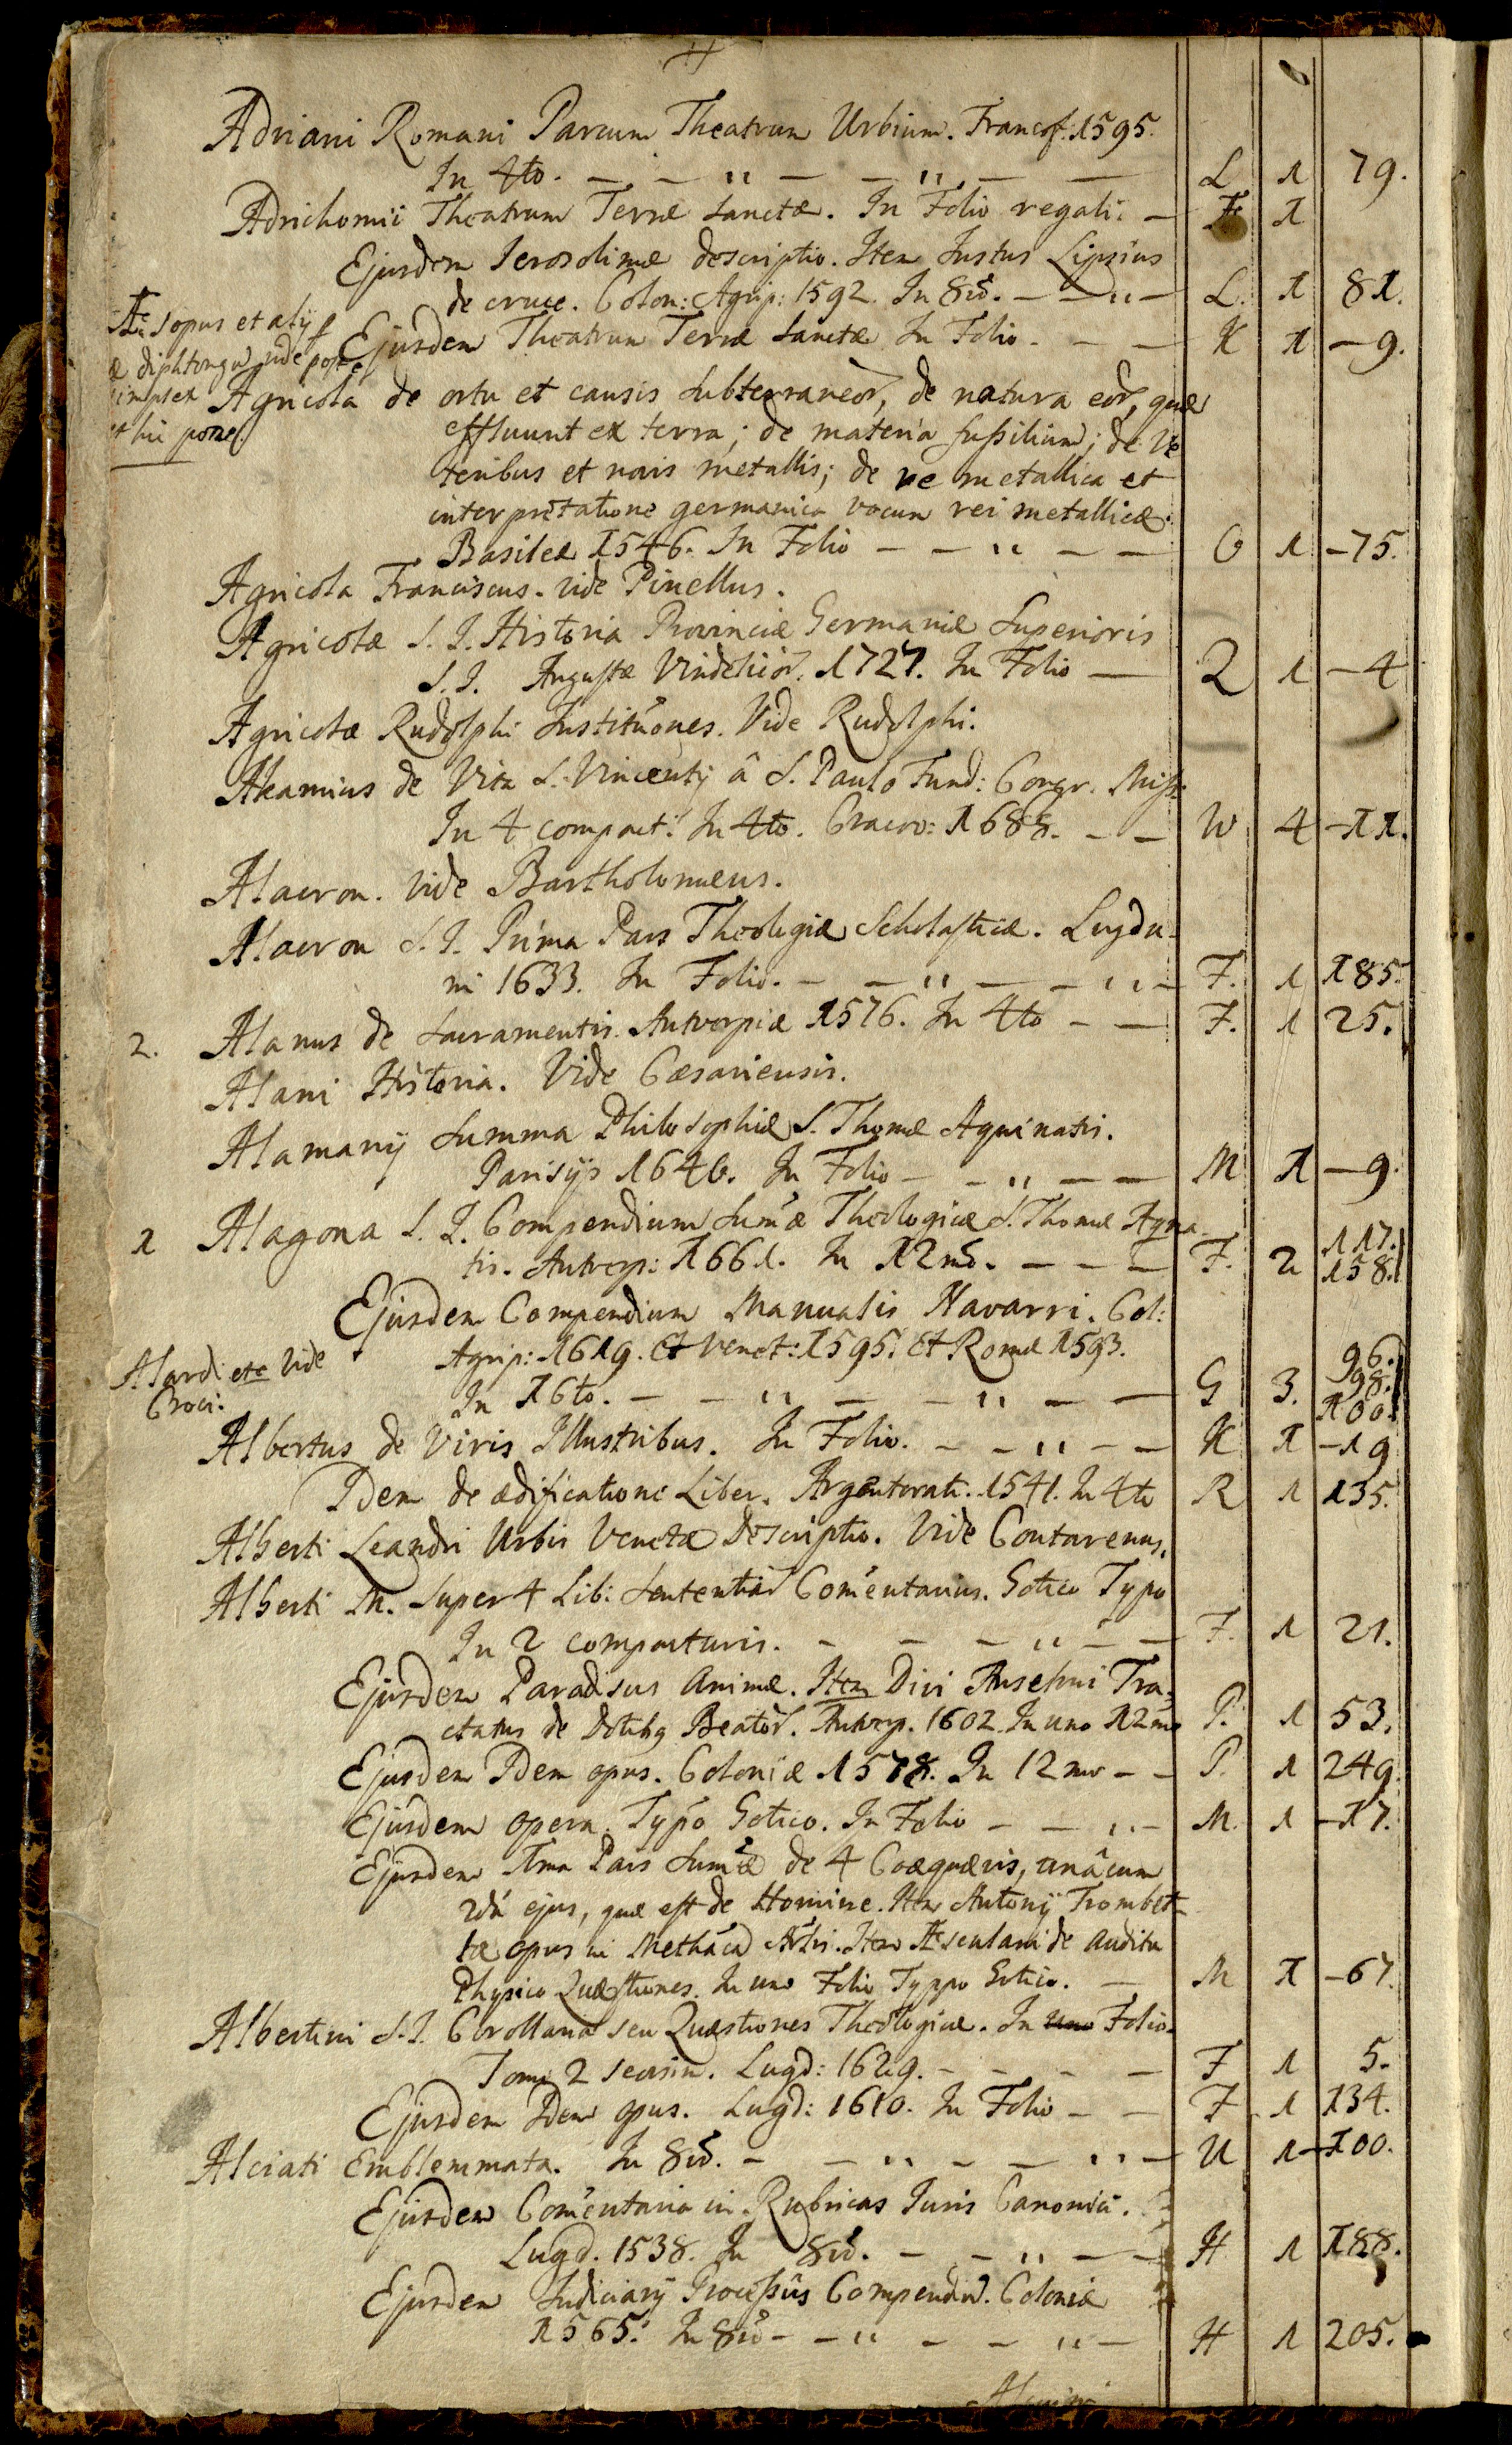 Adriani Romani Parcum Theatrum Urbium. Francof. 1595.
In 4to. — — " — — " — — L 1 79.
Adrichomii Theatrum Terræ Sanctæ. In Folio regali — F 1
Ejusdem Ierosolimæ descriptio. Item Justus Lipsius
de cruce. Colon: Agrip: 1592. In 8vo. — — " — L. 1 81.
Æsopus et alij
Ejusdem Theatrum Terræ Sanctæ In Folio. — — K 1 — 9.
æ diphtonga vide post
Agricola de ortu et causis Subterraneor, de natura eor, quæ
et hic pone.
effluunt ex terra; de materia fussilium; de Ve
teribus et novis metallis; de re metallica et
interpretatione germanica vocum rei metallicæ.
Basileæ 1546. In Folio — — " — — O 1 — 75.
Agricola Franciscus. vide Pinellus.
Agricolæ S. I. Historia Provinciæ Germaniæ Superioris
S. I. Augustæ Vindelicor. 1727. In Folio — Q 1 — 4
Agricolæ Rudolphi Instituones. Vide Rudolphi.
Akamius de Vita S. Vincentij â S. Paulo Fund: Congr. Miss:
In 4 compact: In 4to. Cracov: 1688. — — W 4 — 11.
Alacron. vide Bartholomæus.
Alacron S. I. Prima Pars Theologiæ Scholasticæ. Lugdu-
ni 1633. In Folio. — — " — — " — F. 1 185.
2. Alanus de Sacramentis. Antverpiæ 1576. In 4to — — F. 1 25.
Alani Historia. Vide Cæsariensis.
Alamanij Summa Philosophiæ S. Thomæ Aquinatis.
Parisijs 1640. In Folio — — " — — M 1 — 9.
1 Alagona S. I. Compendium Sumæ Theologicæ S. Thomæ Aqna
117.
tis. Antverp: 1661. In 12mo. — — — F. 2 158.
Ejusdem Compendium Manualis Navarri. Col:
Alardi etc vide
Agrip: 1619. Et Venet: 1595. Et Romæ 1593.
96.
98.
Croci.
In 16to. — — " — — " — — G 3. 100.
Albertus de Viris Illustribus. In Folio. — — " — — K 1 — 19
Idem de ædificatione Liber. Argentorati. 1541. In 4to R 1 135.
Alberti Leandri Urbis Venetæ Descriptio. Vide Contarenus.
Alberti M. Super 4 Lib: Sententiar Comentarius. Gotico Typo
In 2 compacturis. — — — " — — F. 1 21.
Ejusdem Paradisus Animæ. Item Divi Anselmi Tra-
ctatus de Dotibq Beator. Antverp. 1602. In uno 12mo P. 1 53.
Ejusdem Idem opus. Coloniæ 1578. In 12mo — — P. 1 249.
Ejusdem opera. Typo Gotico. In Folio — — " — M. 1 — 17.
Ejusdem 1ma Pars Sumæ de 4 Coæquævis, unâcum
2da ejus, quæ est de Homine. Item Antonij Trombet-
tæ opus in Methâca Artis. Item Æsculani de Auditu
Physico Quæstiones. In uno Folio Typpo Gotico. — M 1 — 67.
Albertini S. I. Corollaria seu Quæstiones Theologicæ. In uno Folio.
Tomi 2 seorsim. Lugd: 1629. — — — — F 1 5.
Ejusdem Idem opus. Lugd: 1610. In Folio — — F. 1 134.
Alciati Emblemmata. In 8vo. — — " — — " — U 1 — 100.
Ejusdem Comentaria in Rubricas Juris Canonici.
Lugd. 1538. In 8vo. — — " — — H 1 188.
Ejusdem Judiciarij Processûs Compendiu. Coloniæ
1565. In 8vo — — " — — " — H 1 205.